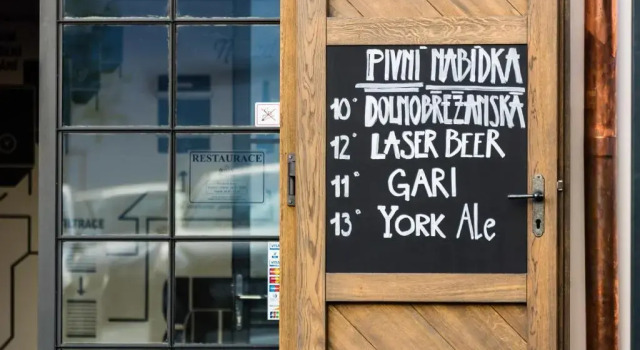 PIVNÍ NABÍDKA
10° DOLNOBŘEŽANSKÁ
12° LASER BEER
11° GARI
13° YORK Ale
RESTAURACE